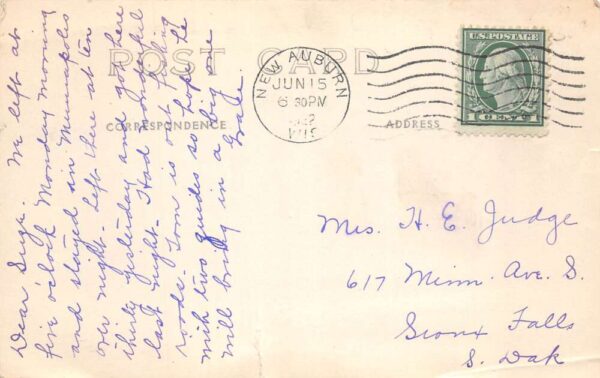 POST CARD
CORRESPONDENCE
ADDRESS
NEW AUBURN
JUN 15
6 30 PM
WIS
U.S. POSTAGE
1 CENT
Dear Suze. We left at
five o'clock Monday morning
and stayed in Minneapolis
over night. Left there at ten
thirty yesterday and got here
last night. Had wonderful
roads. Tom is out fishing
with two guides so hope he
will bring in a big one
Grace.
Mrs. H. E. Judge
617 Minn. Ave. S.
Sioux Falls
S. Dak